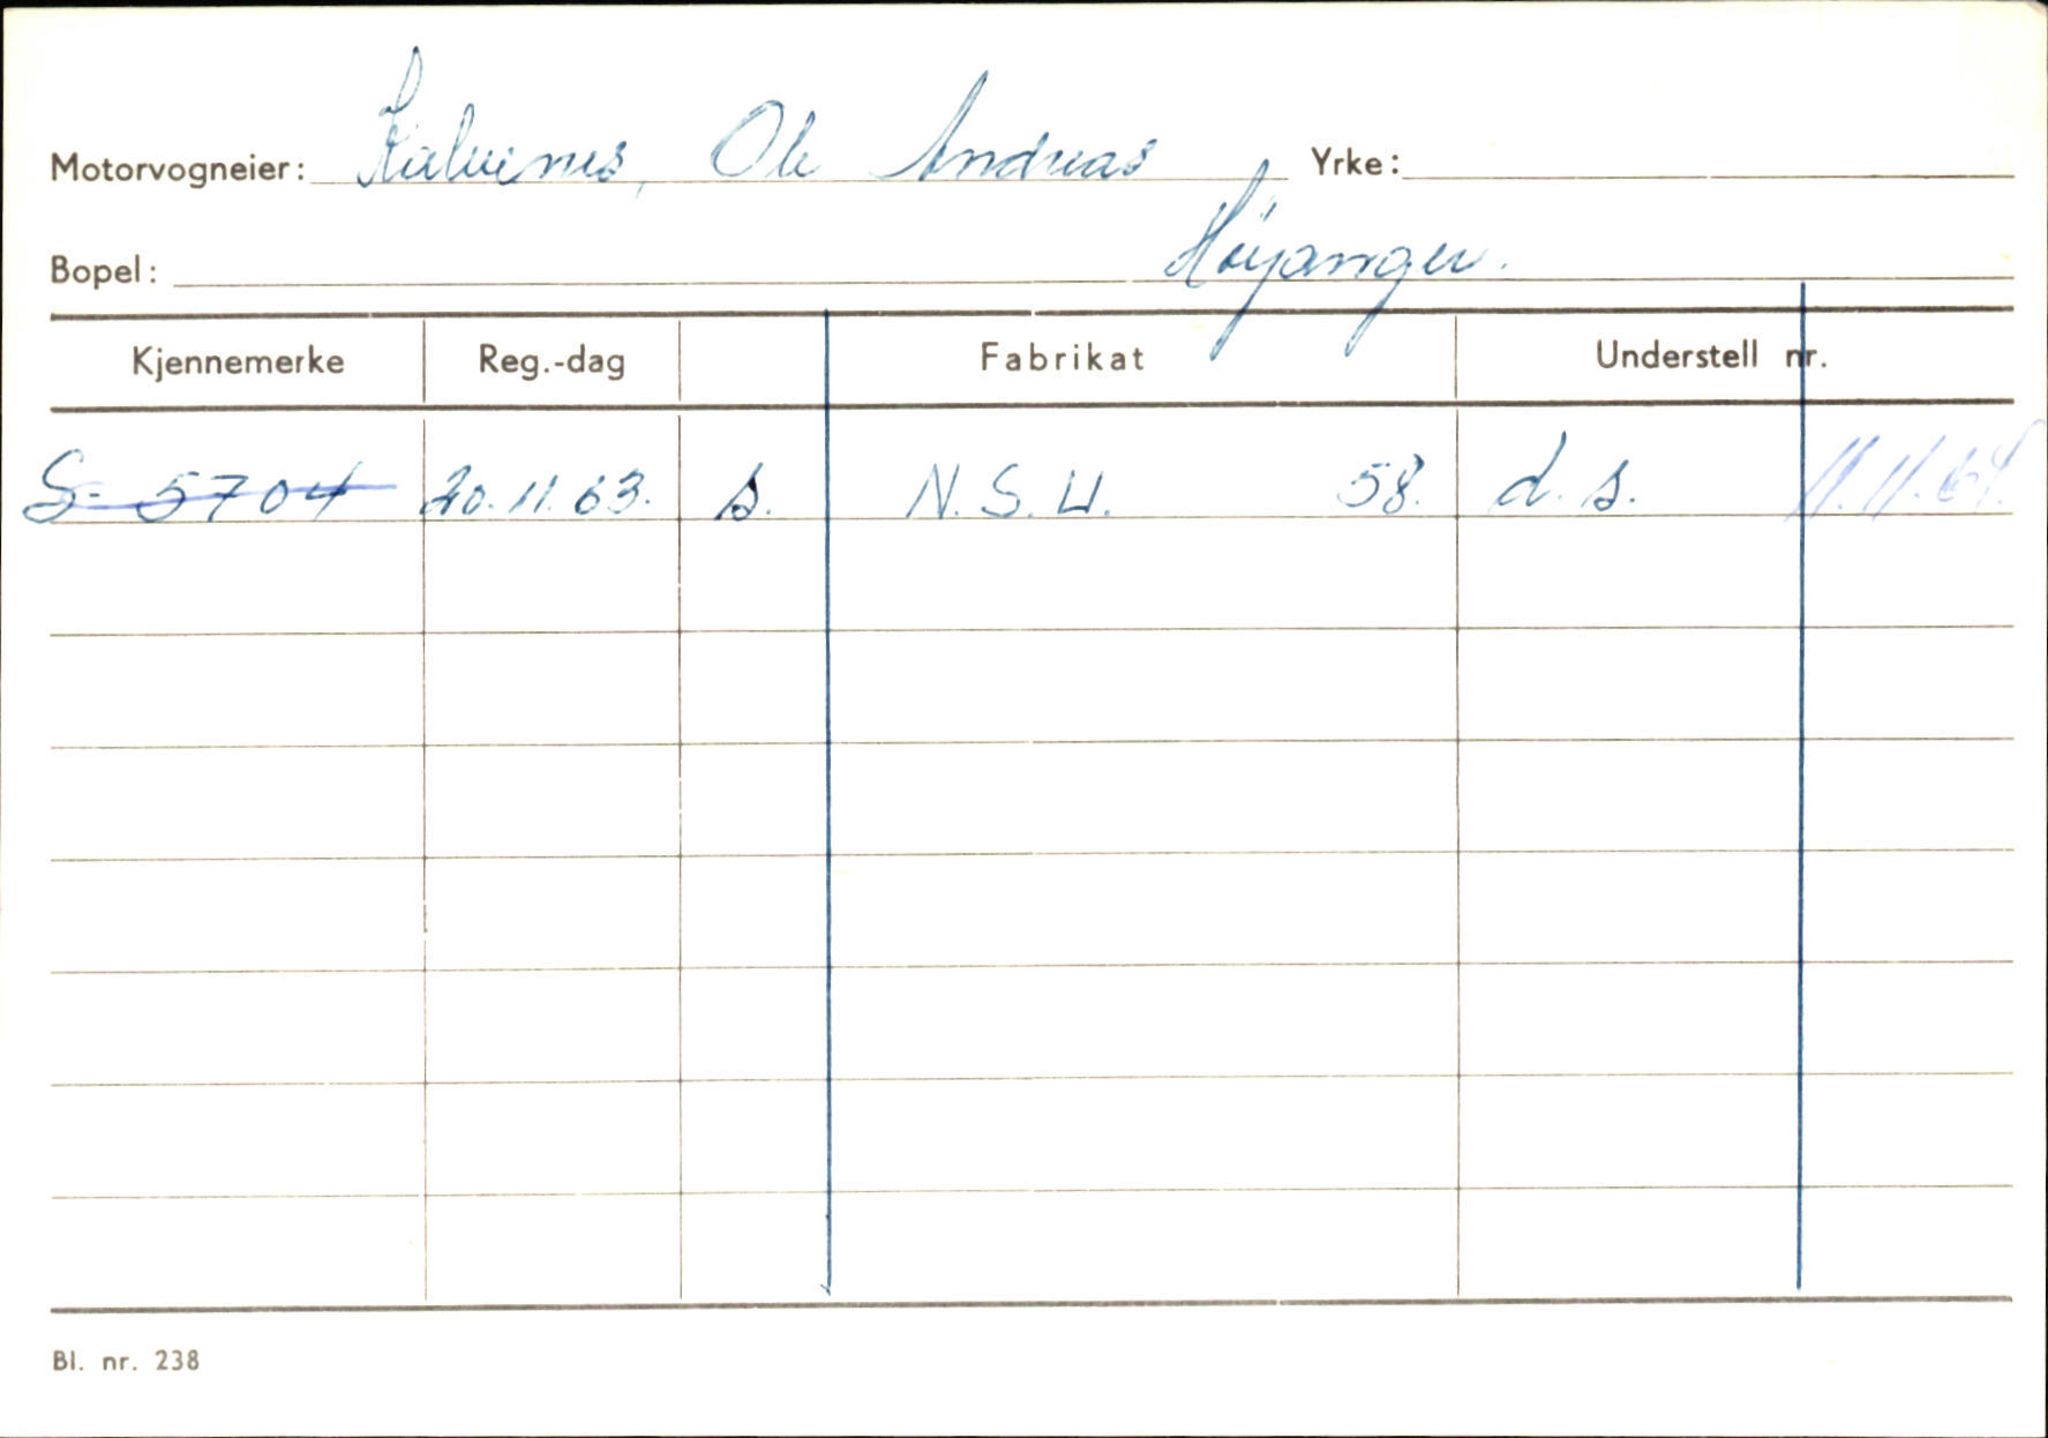 Motorvogneier: Kalvenes, Ole Andreas Yrke:
Bopel: Høyanger.
Kjennemerke Reg.-dag Fabrikat Understell nr.
S- 5704 20.11.63. s. N.S.U. 58. d.s. 11.11.64.
Bl. nr. 238